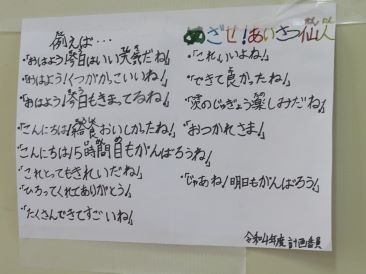 めざせ!あいさつ仙人
例えば…
・「おはよう!今日はいい天気だね!」
・「おはよう!くつがかっこいいね!」
・「おはよう!今日もきまってるね!」
・「こんにちは!給食おいしかったね!」
・「こんにちは!5時間目もがんばろうね!」
・「これとってもきれいだね!」
・「ひろってくれてありがとう!」
・「たくさんできてすごいね!」
・「これいいよね!」
・「できて良かったね!」
・「次のじゅぎょう楽しみだね!」
・「おつかれさま!」
・「じゃあね!明日もがんばろう!」
令和4年度 計画委員